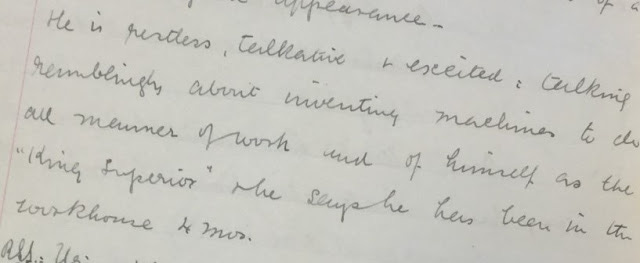 of a
appearance -
He is restless, talkative & excited: talking
ramblingly about inventing machines to do
all manner of work and of himself as the
"King Superior" & he says he has been in the
workhouse 4 mos.